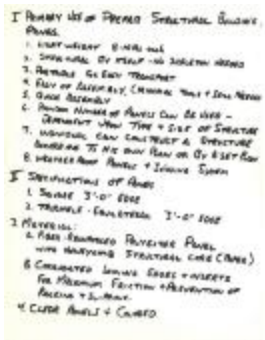 I PRIMARY USE OF PREFAB STRUCTURAL BUILDING
PANELS.
1. LIGHT WEIGHT
2. STRUCTURAL BY ITSELF - NO SKELETON NEEDED
3. PORTABLE TRANSPORT
4. EASY OF ASSEMBLY,
5. QUICK ASSEMBLY
6. NUMBER OF PANELS CAN BE USED -
DEPENDENT UPON TYPE + SIZE OF STRUCTURE
7. INDIVIDUAL CAN CONSTRUCT A STRUCTURE
ACCORDING TO HIS OWN PLAN OR BY A SET PLAN
8. WEATHER PROOF PANELS + JOINING SYSTEM
II SPECIFICATIONS OF PANELS
1. SQUARE 3'-0" EDGE
2. TRIANGLE - EQUILATERAL 3'-0" EDGE
3. MATERIAL:
FIBER-REINFORCED POLYESTER PANEL
WITH HONEYCOMB STRUCTURAL CORE (PAPER)
B. CORRUGATED JOINING EDGES + INSERTS
FOR MAXIMUM FRICTION + PREVENTION OF
4. CLEAR PANELS + COLORED